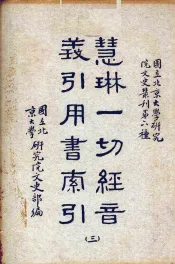 國立北京大學研究
院文史叢刊第六種
慧琳一切經音
義引用書索引
(三)
國立北
京大學
研究院文史部編